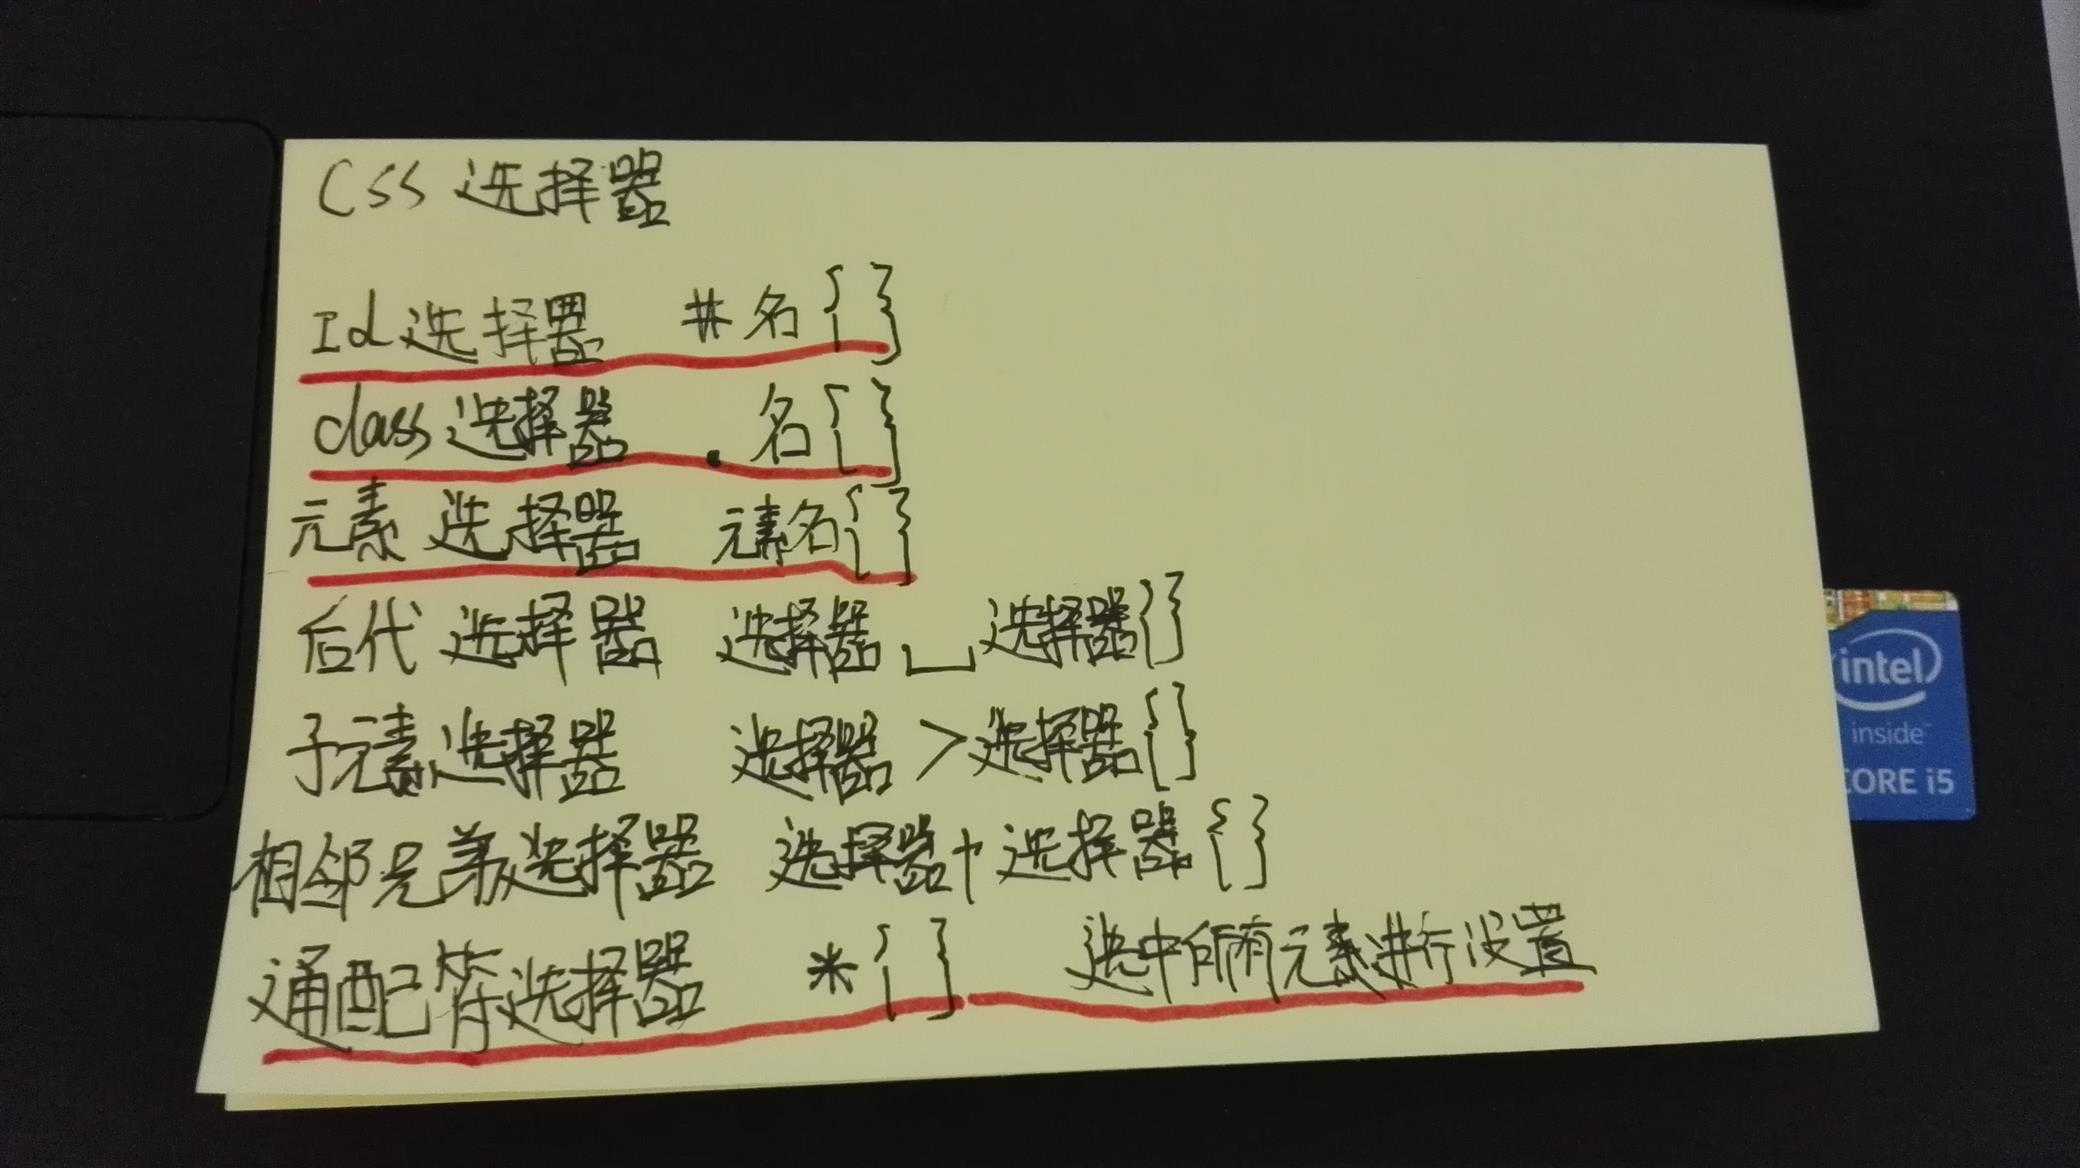 CSS 选择器
Id选择器 #名{}
class选择器 .名{}
元素选择器 元素名{}
后代选择器 选择器␣选择器{}
子元素选择器 选择器>选择器{}
相邻兄弟选择器 选择器+选择器{}
通配符选择器 *{} 选中所有元素进行设置
intel
inside™
CORE i5